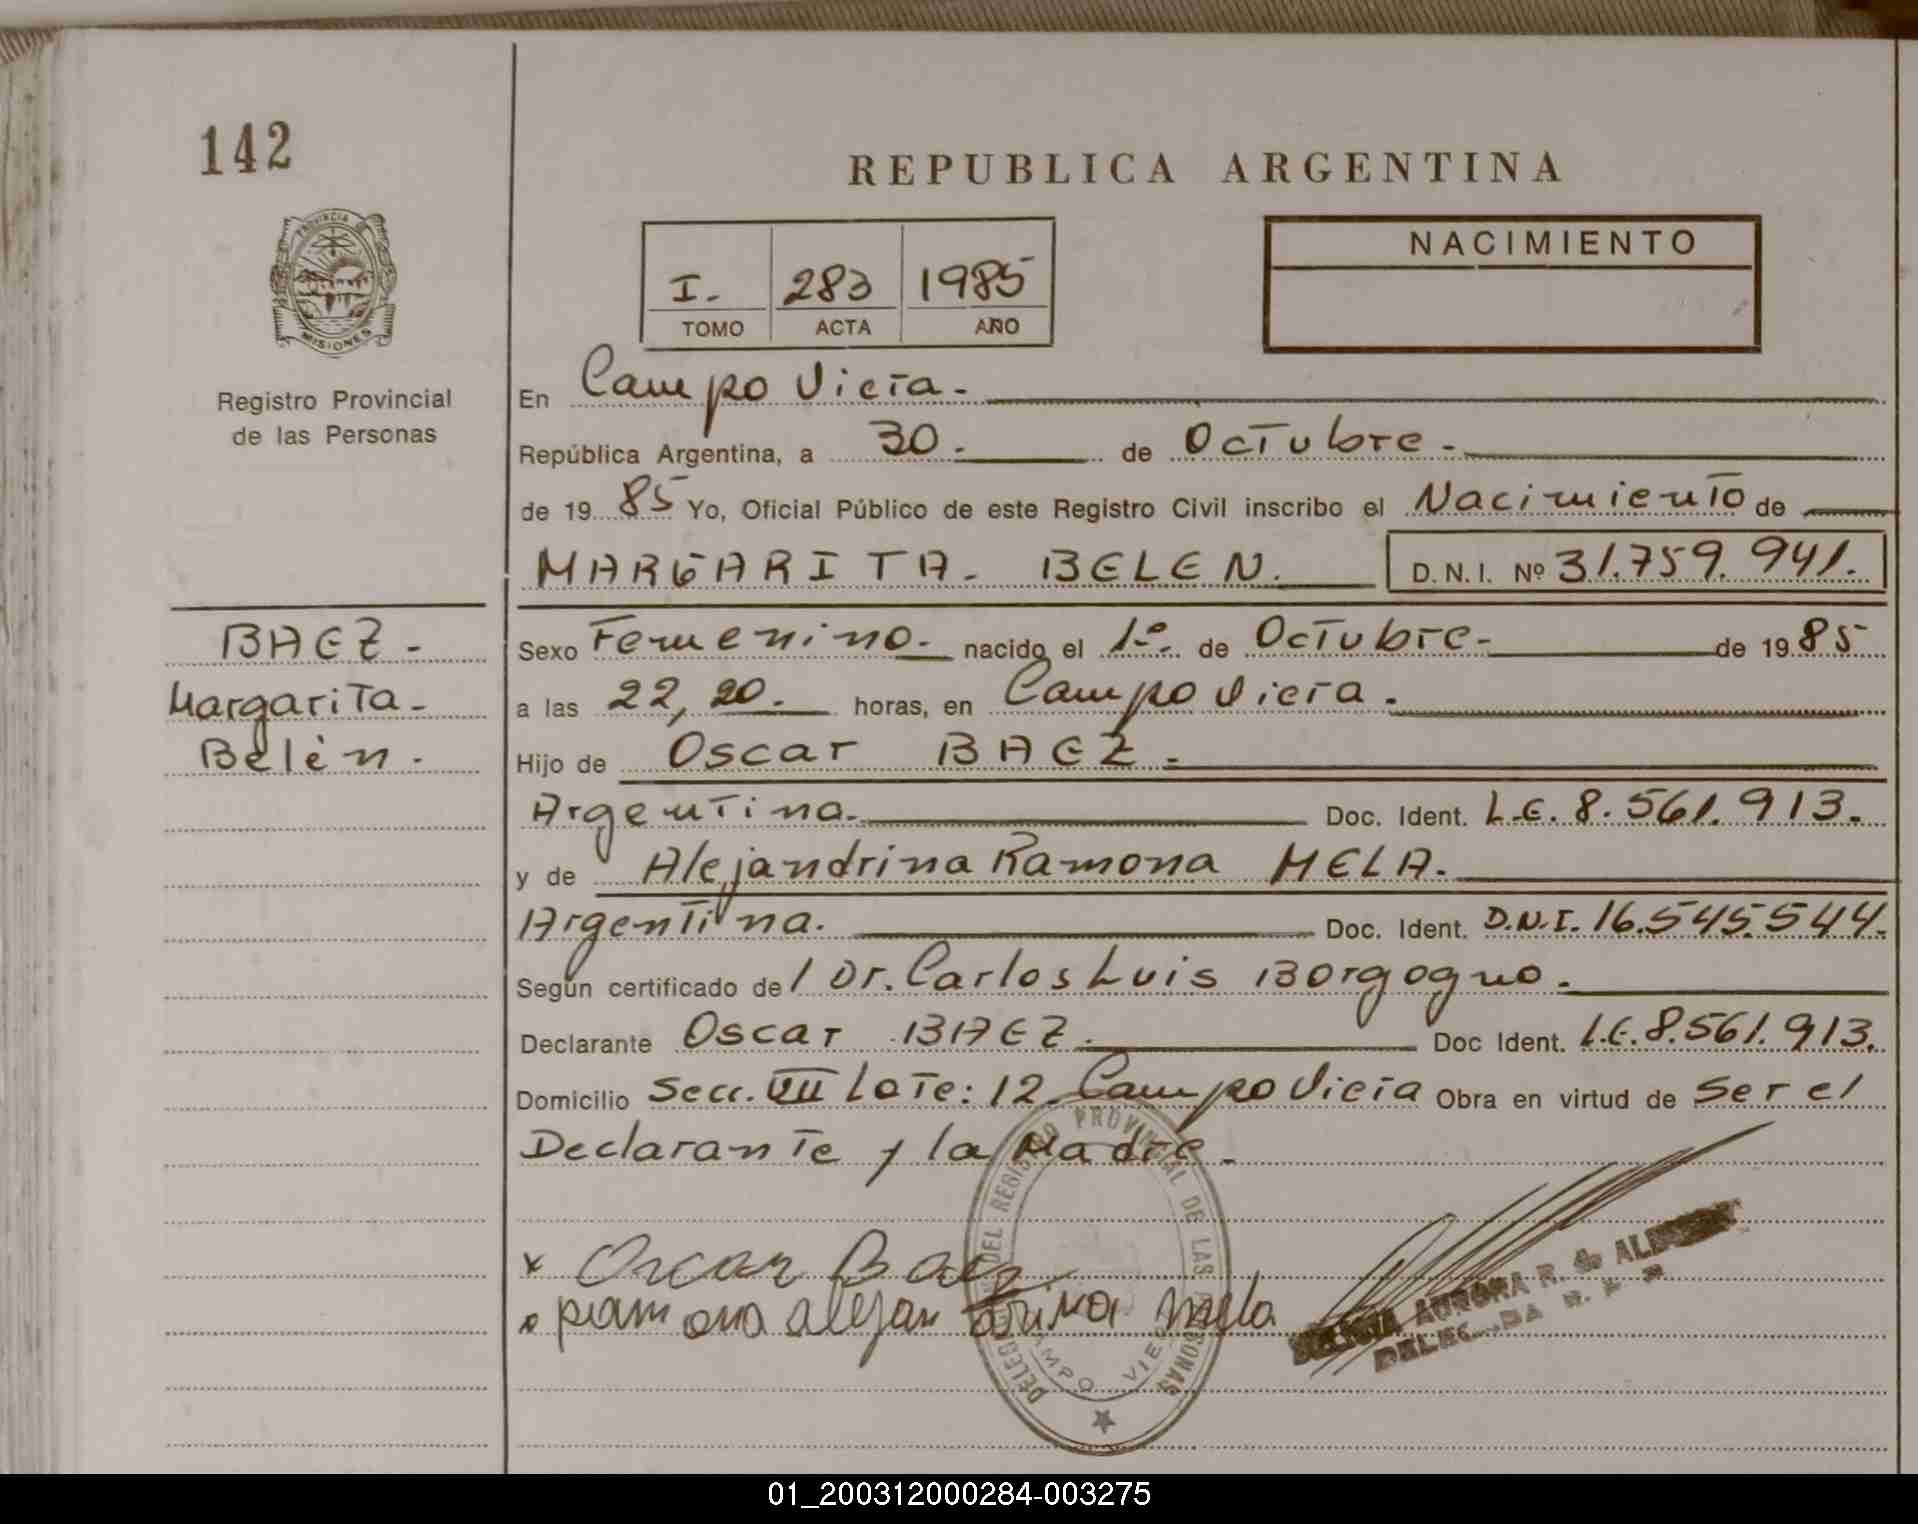 142
REPUBLICA ARGENTINA
PROVINCIA
MISIONES
Registro Provincial
de las Personas
I. 283 1985
TOMO ACTA AÑO
NACIMIENTO
En Campo Viera.
República Argentina, a 30. de Octubre.
de 19 85 Yo, Oficial Público de este Registro Civil inscribo el Nacimiento de
MARGARITA. BELEN. D.N.I. Nº 31.759.941.
BAEZ.
Margarita.
Belén.
Sexo Femenino. nacido el 1º. de Octubre. de 19 85
a las 22,20. horas, en Campo Viera.
Hijo de Oscar BAEZ.
Argentina. Doc. Ident. L.E. 8.561.913.
y de Alejandrina Ramona MELA.
Argentina. Doc. Ident. D.N.I. 16.545.544.
Según certificado de / Dr. Carlos Luis Borgogno.
Declarante Oscar BAEZ. Doc Ident. L.E. 8.561.913.
Domicilio Secc. VII Lote: 12. Campo Viera Obra en virtud de Ser el
Declarante y la Madre.
x Oscar Baez
ramona alejandrina mela
DEL REGISTRO PROVINCIAL DE LAS PERSONAS
CAMPO VIERA
AURORA R. de
01_200312000284-003275